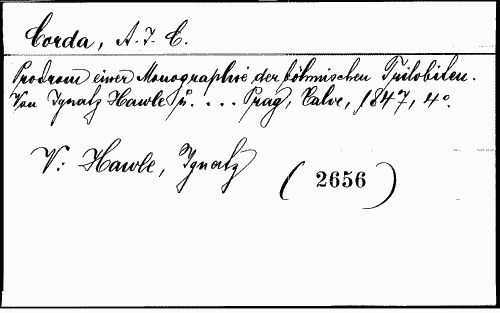 Corda, A. J. C.
Prodrom einer Monographie der böhmischen Trilobiten.
Von Ignatz Hawle u. ... Prag, Calve, 1847, 4°.
V: Hawle, Ignatz
(2656)